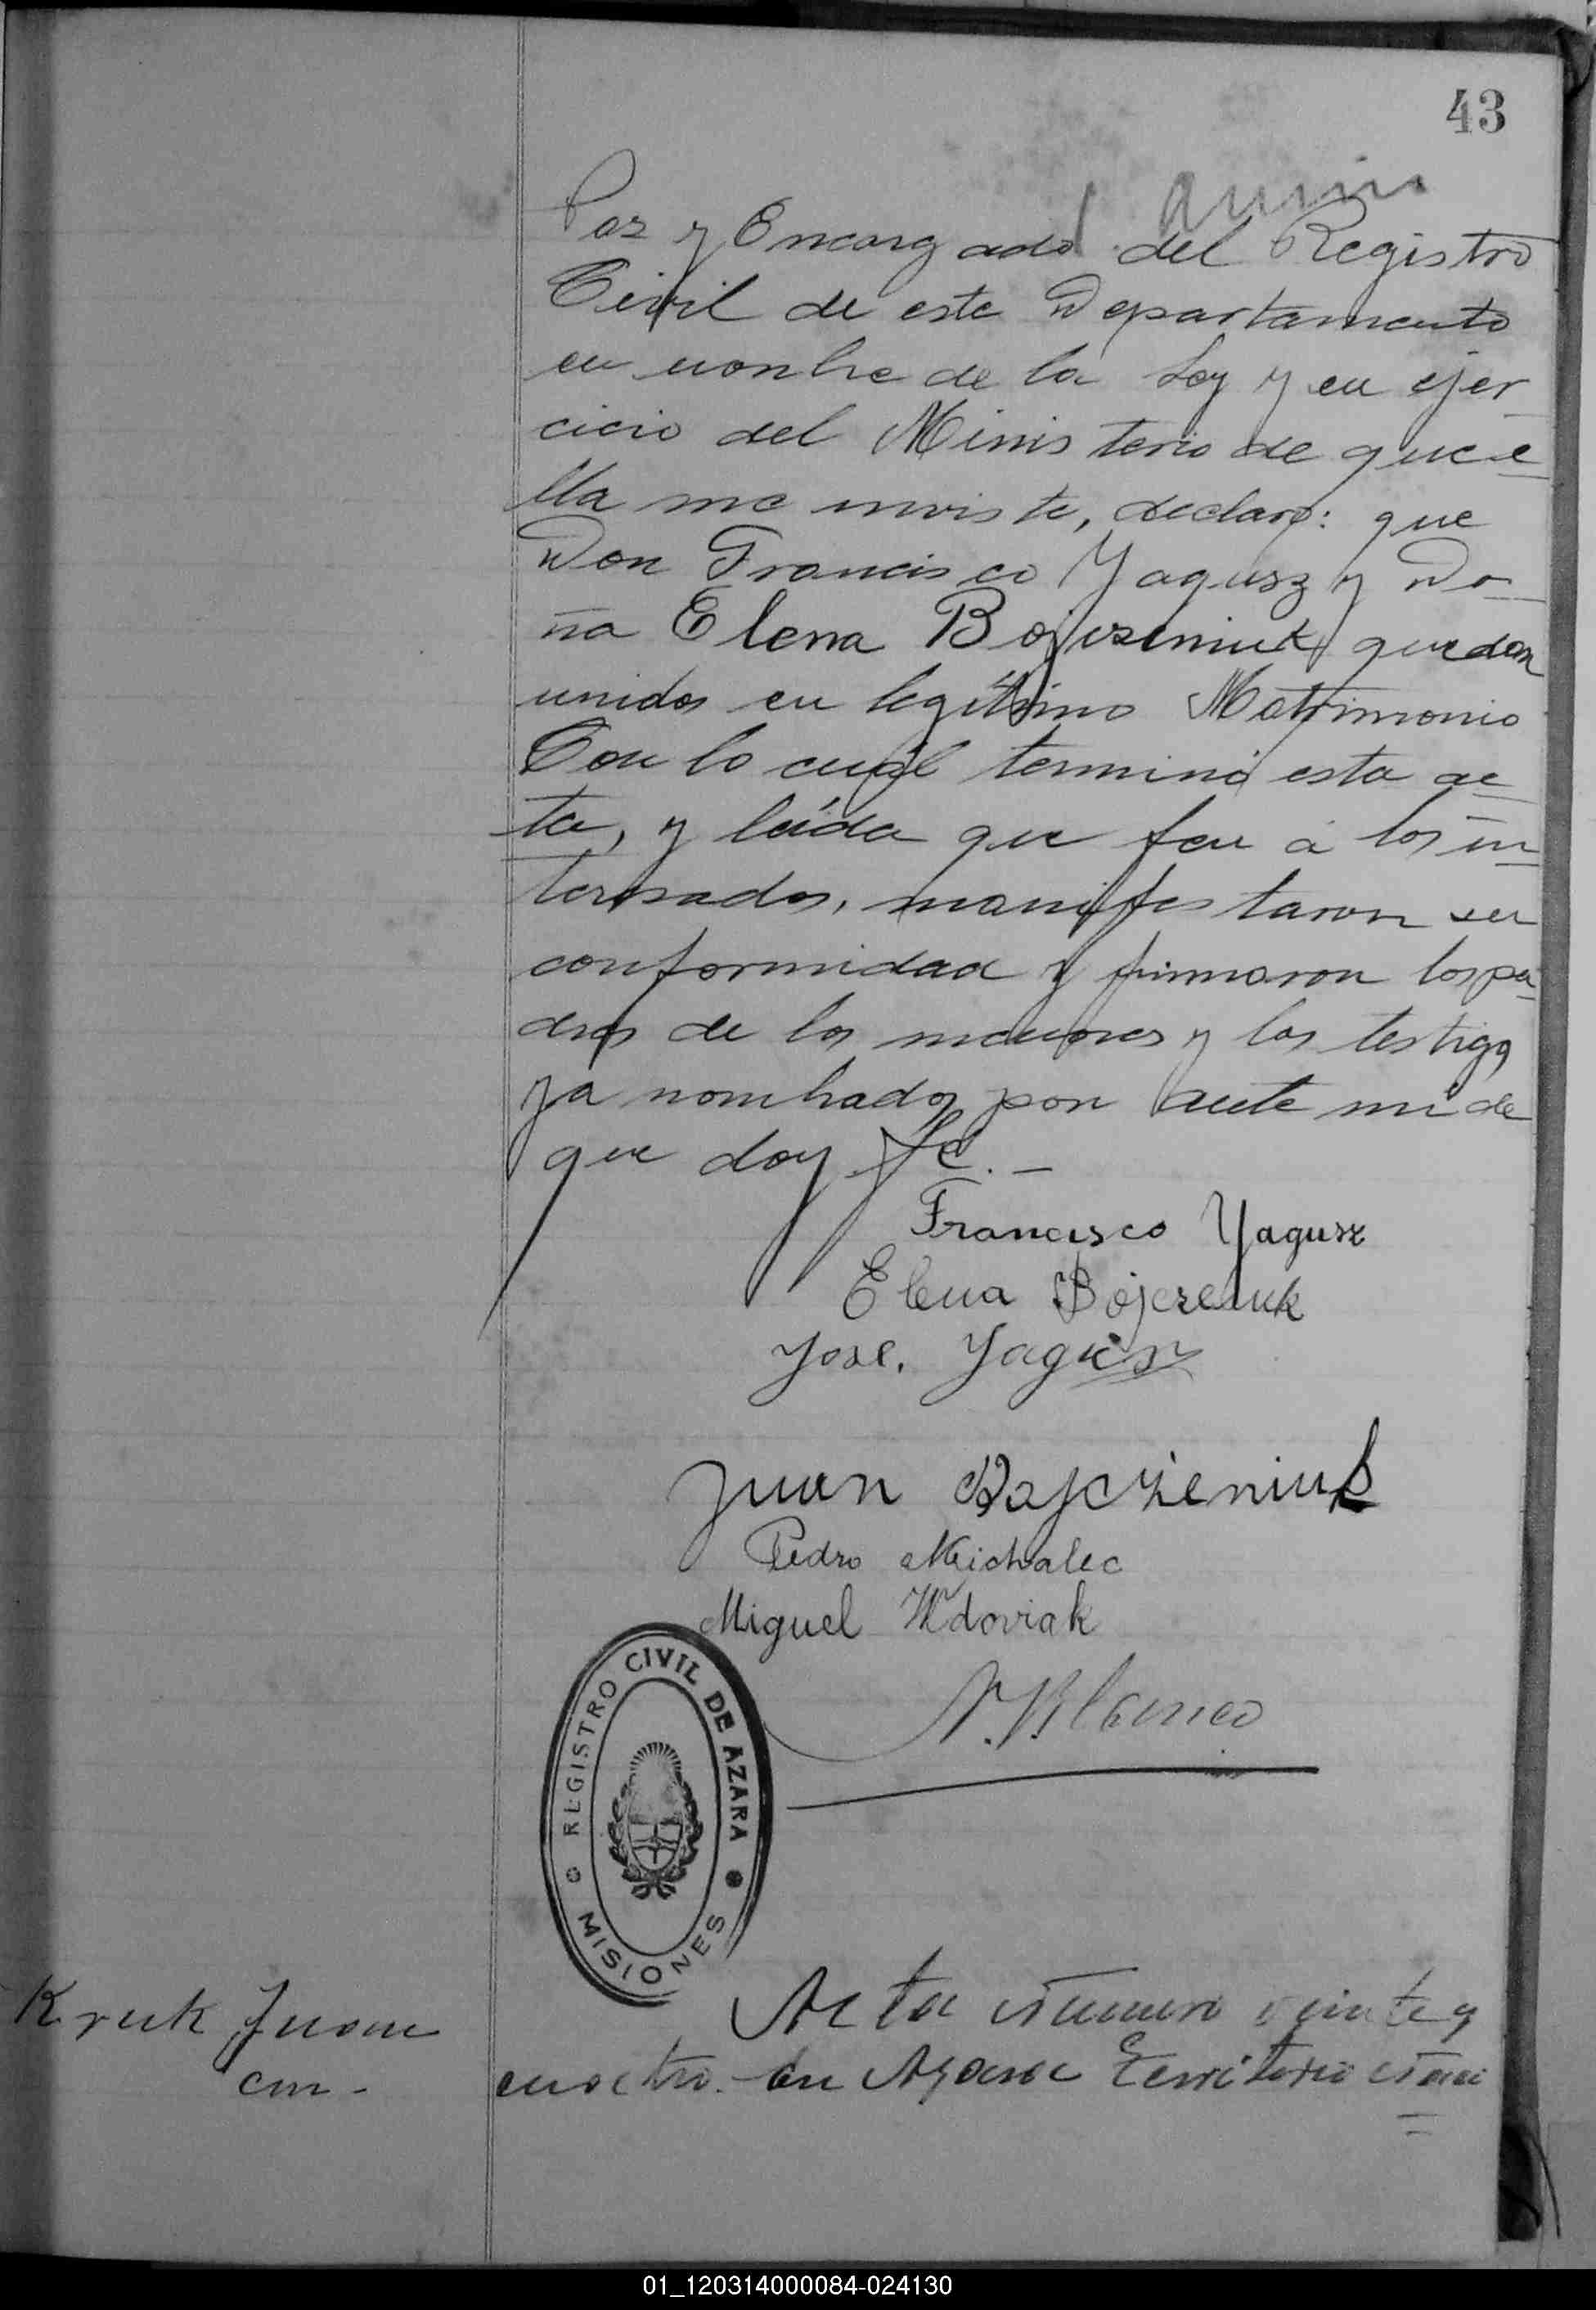 43
Paz y Encargado del Registro
Civil de este Departamento
en nonbre de la Ley y en ejer
cicio del Ministerio de que e
lla me inviste, declaro: que
Don Francisco Yagusz y Do-
ña Elena Bojczeniuk quedan
unidos en legítimo Matrimonio
Con lo cuál terminó esta ac
ta, y leída que fue á los in
teresados, manifestaron su
conformidad y firmaron los pa
dres de los menores y los testigos
ya nombrados por ante mi de
que doy fé. —
Francisco Yagusz
Elena Bojczeniuk
José. Yagusz
Juan Bojczeniuk
Pedro Michalec
Miguel Wdoviak
Blanco
REGISTRO CIVIL DE AZARA
MISIONES
Kruk Juan
con -
Acta número veinte y
cuatro. En Azara Territorio
01_120314000084-024130